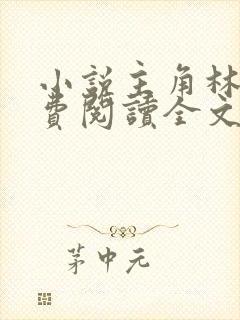 小説主角林
費閱讀全文
茅中元